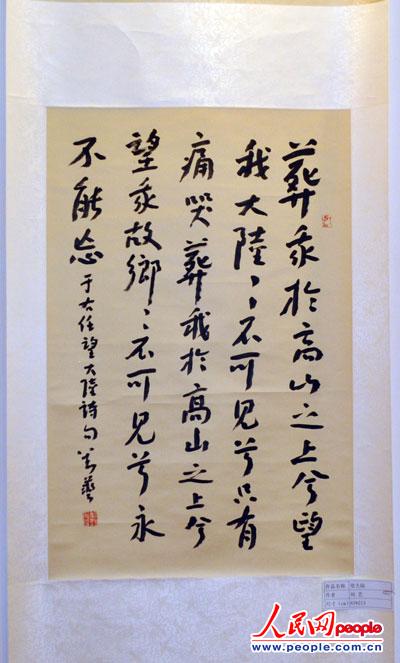 葬我於高山之上兮望
我大陸〻不可見兮只有
痛哭葬我於高山之上兮
望我故鄉〻不可見兮永
不能忘
于右任望大陸詩句 藝
作品名称 望大陆
作者 刘艺
尺寸(cm)
人民网people
www.people.com.cn